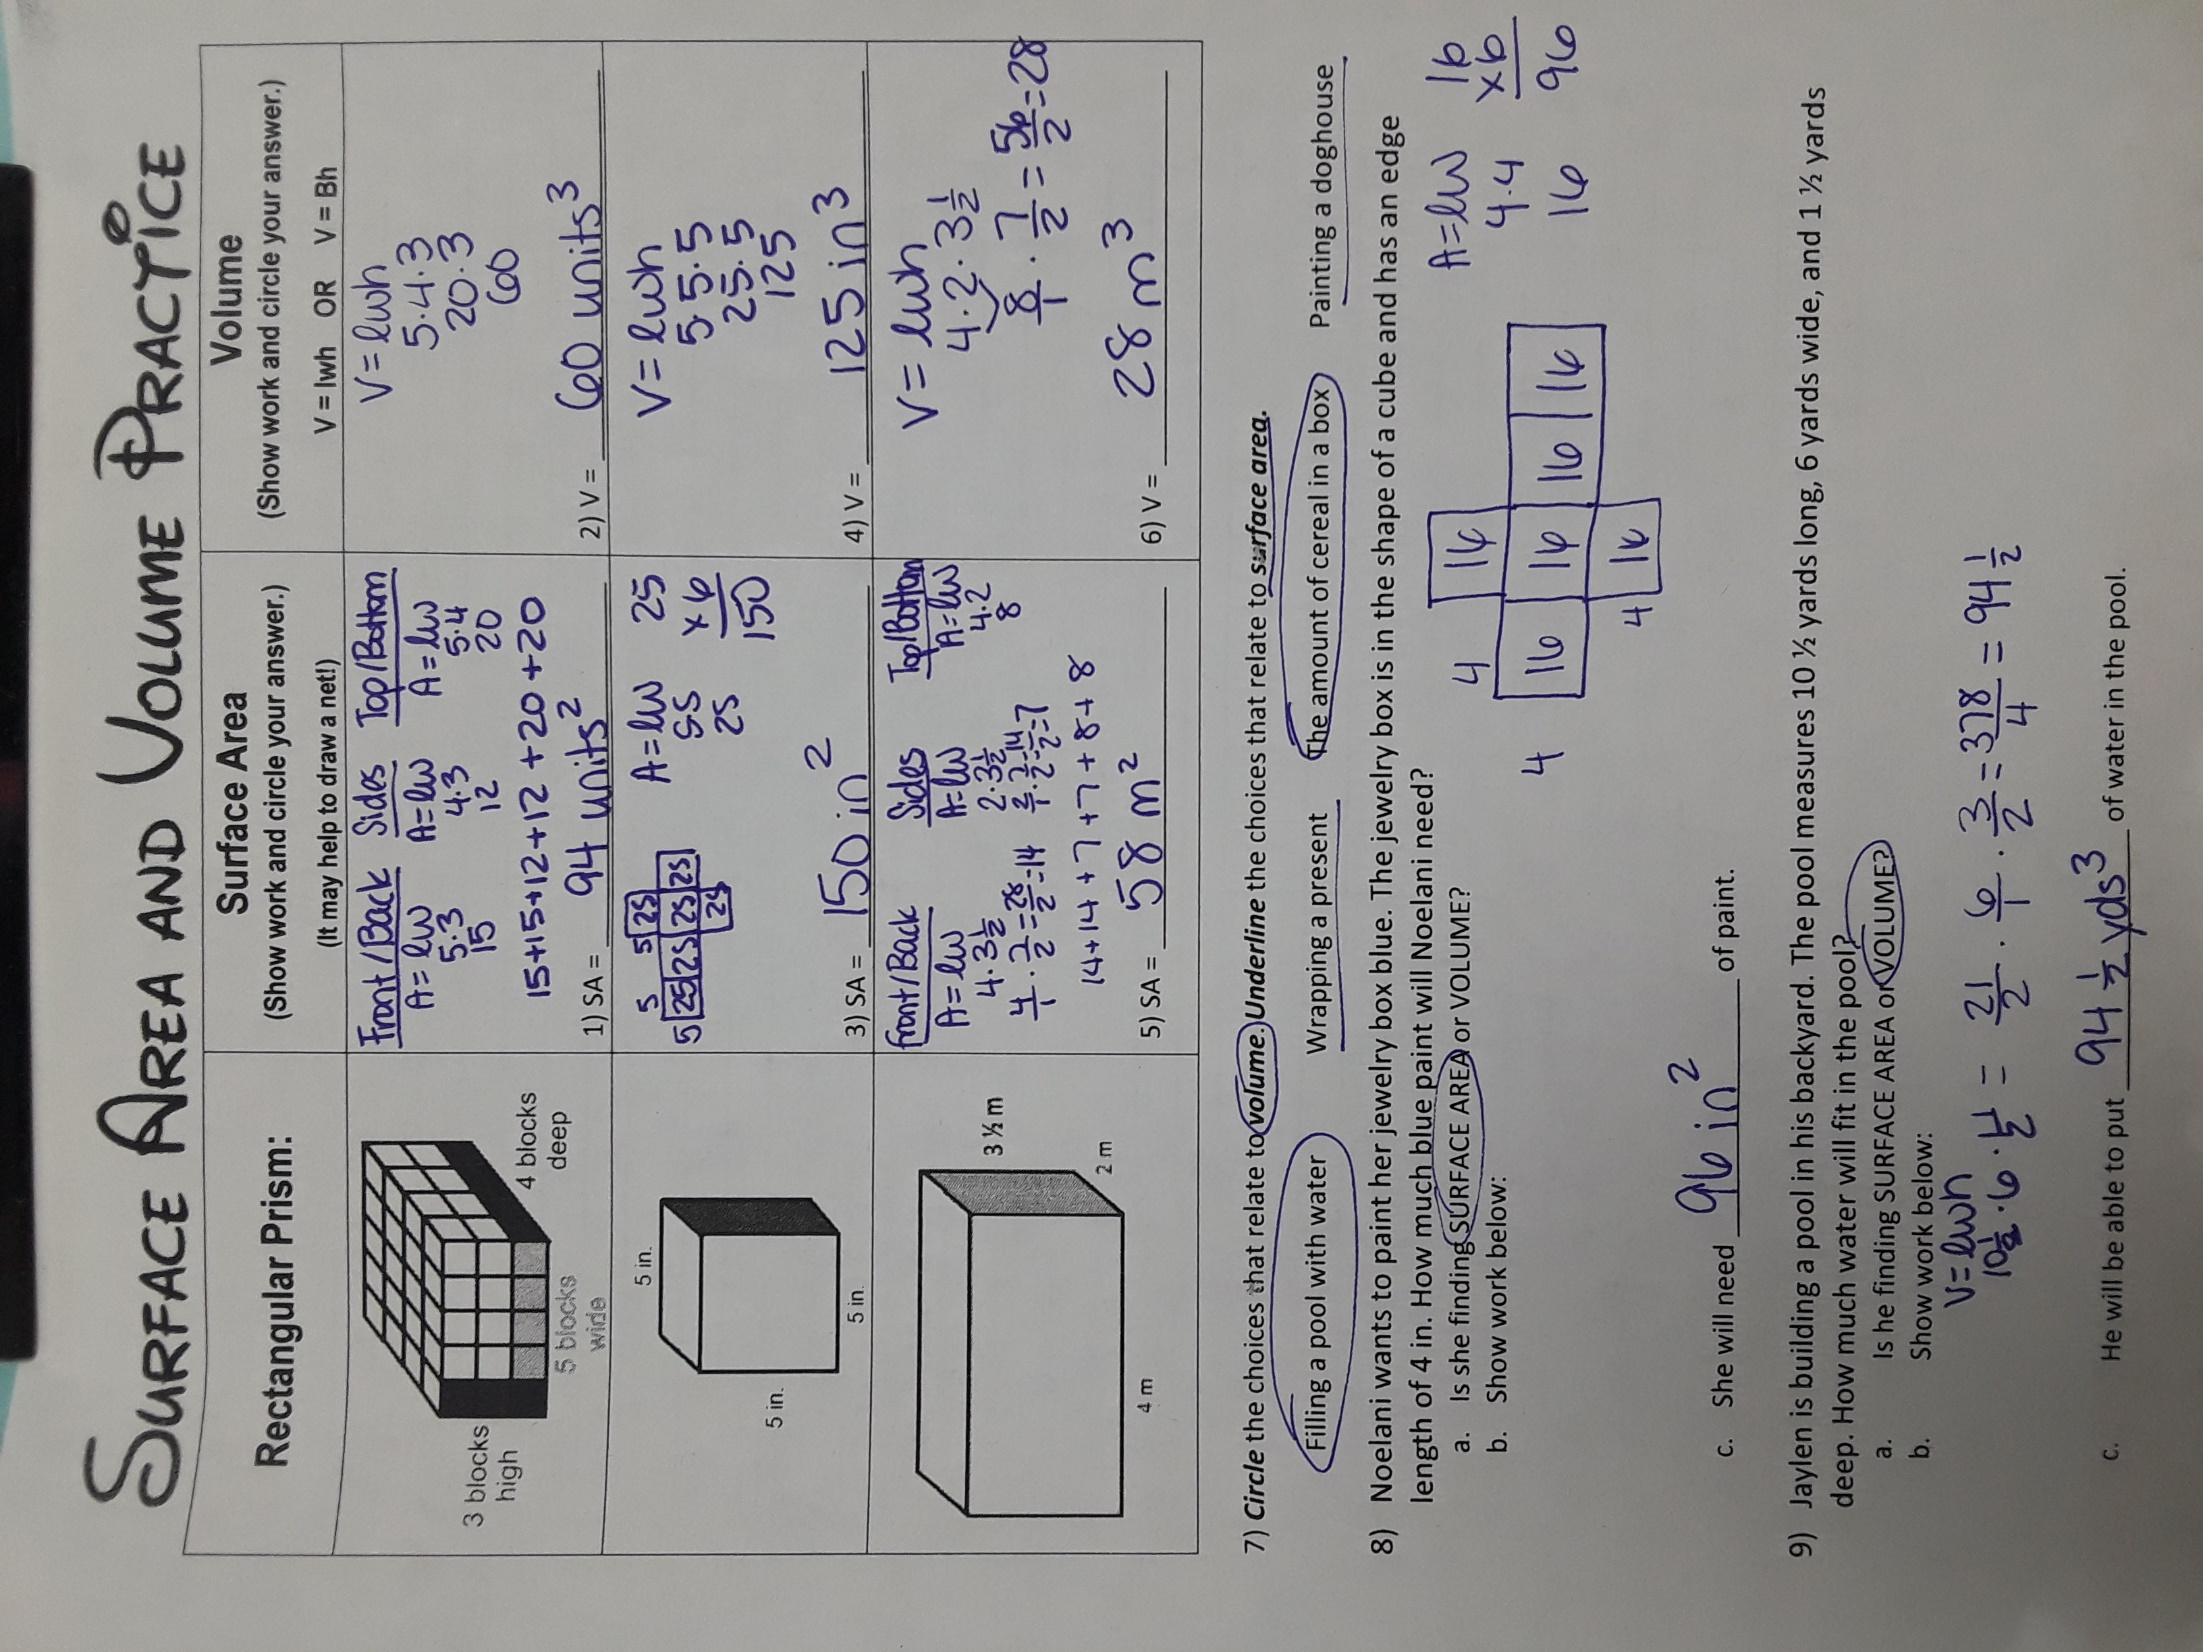 SURFACE AREA AND VOLUME PRACTICE
Rectangular Prism:
Surface Area
(Show work and circle your answer.)
(It may help to draw a net!)
Volume
(Show work and circle your answer.)
V = lwh OR V = Bh
3 blocks
high
5 blocks
wide
4 blocks
deep
Front/Back Sides Top/Bottom
A=lw A=lw A=lw
5·3 4·3 5·4
15 12 20
15+15+12+12+20+20
1) SA = 94 units²
V=lwh
5·4·3
20·3
60
2) V = 60 units³
5 in.
5 in.
5 in.
5 5
5 25 25 25 25
25
25
A=lw
55
25
25
x6
150
3) SA = 150 in²
V=lwh
5·5·5
25·5
125
4) V = 125 in³
3 ½ m
2 m
4 m
Front/Back Sides Top/Bottom
A=lw A=lw A=lw
4·3½ 2·3½ 4·2
4/1·7/2=28/2=14 2/1·7/2=14/2=7 8
14+14+7+7+8+8
5) SA = 58 m²
V=lwh
4·2·3½
8/1·7/2=56/2=28
28 m³
6) V =
7) Circle the choices that relate to volume. Underline the choices that relate to surface area.
Filling a pool with water Wrapping a present The amount of cereal in a box Painting a doghouse
8) Noelani wants to paint her jewelry box blue. The jewelry box is in the shape of a cube and has an edge
length of 4 in. How much blue paint will Noelani need?
a. Is she finding SURFACE AREA or VOLUME?
b. Show work below:
4 4
16
16 16 16 16
4 16
A=lw
4·4
16
16
x6
96
c. She will need 96 in² of paint.
9) Jaylen is building a pool in his backyard. The pool measures 10 ½ yards long, 6 yards wide, and 1 ½ yards
deep. How much water will fit in the pool?
a. Is he finding SURFACE AREA or VOLUME?
b. Show work below:
V=lwh
10½·6·1½ = 21/2·6/1·3/2=378/4=94½
c. He will be able to put 94½ yds³ of water in the pool.